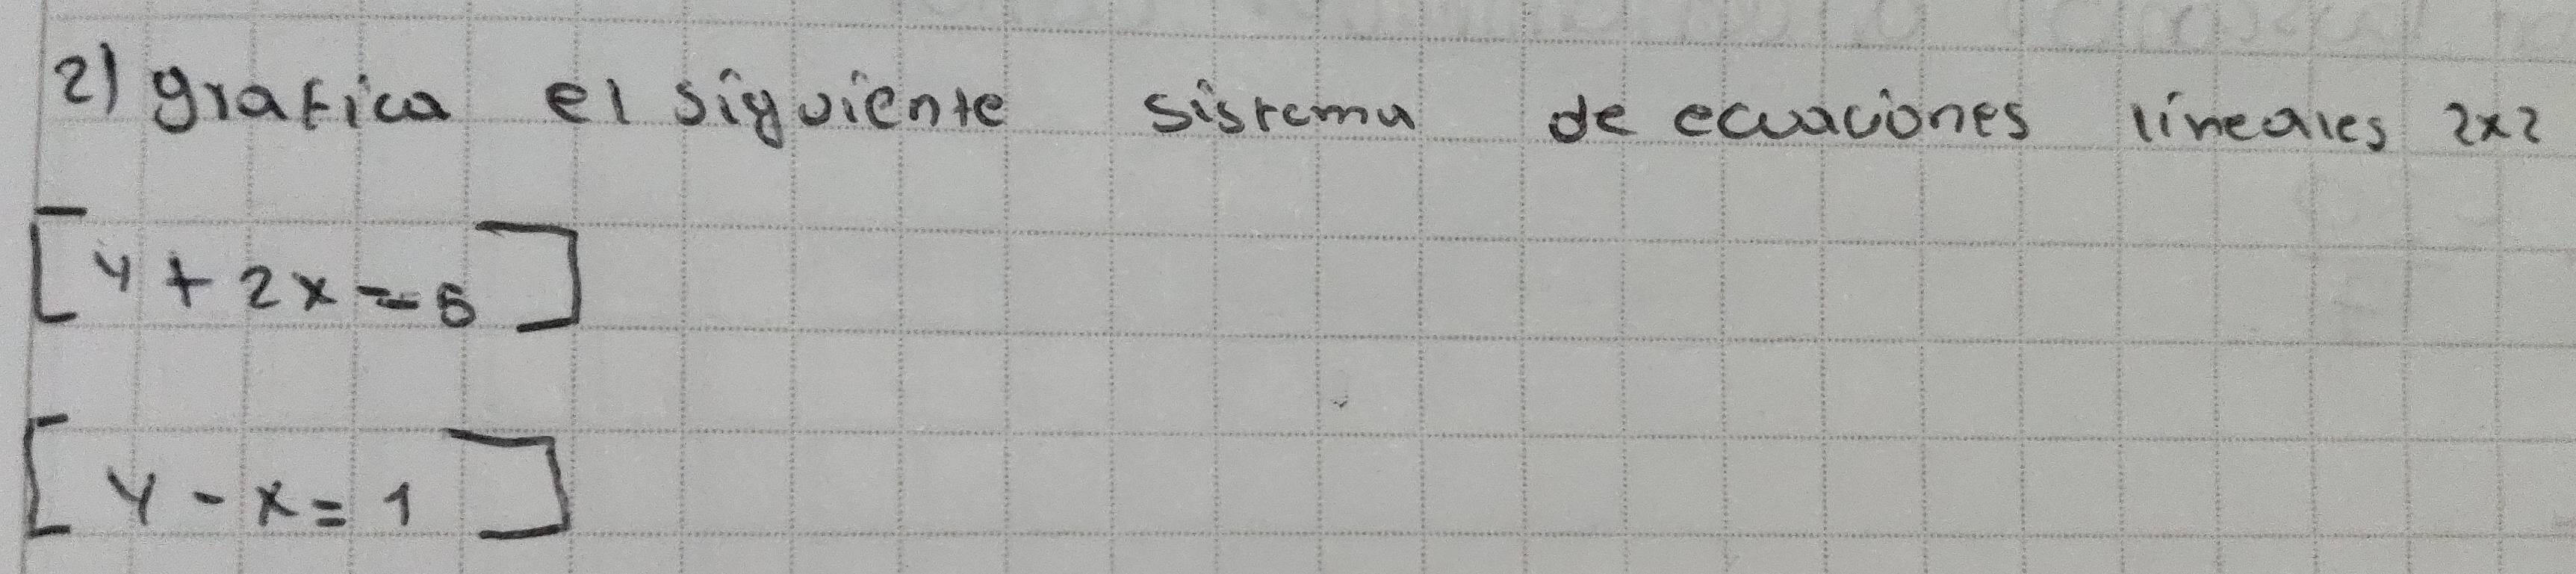 2) grafica el siguiente sistema de ecuaciones lineales 2x2
[y + 2x = 5]
[y - x = 1]